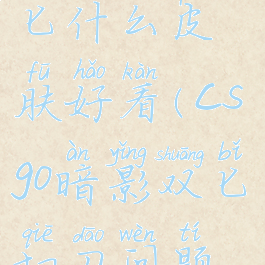 匕什么皮
fū hǎo kàn
肤好看(CS
àn yǐng shuāng bǐ
go暗影双匕
qiē dāo wèn tí
切刀问题